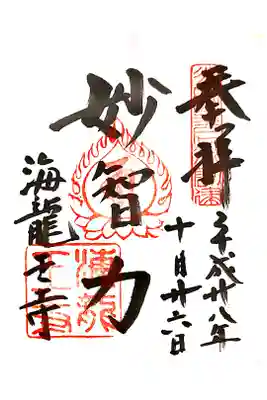 奉拝
平成廿八年
十月廿六日
妙智力
海龍王寺